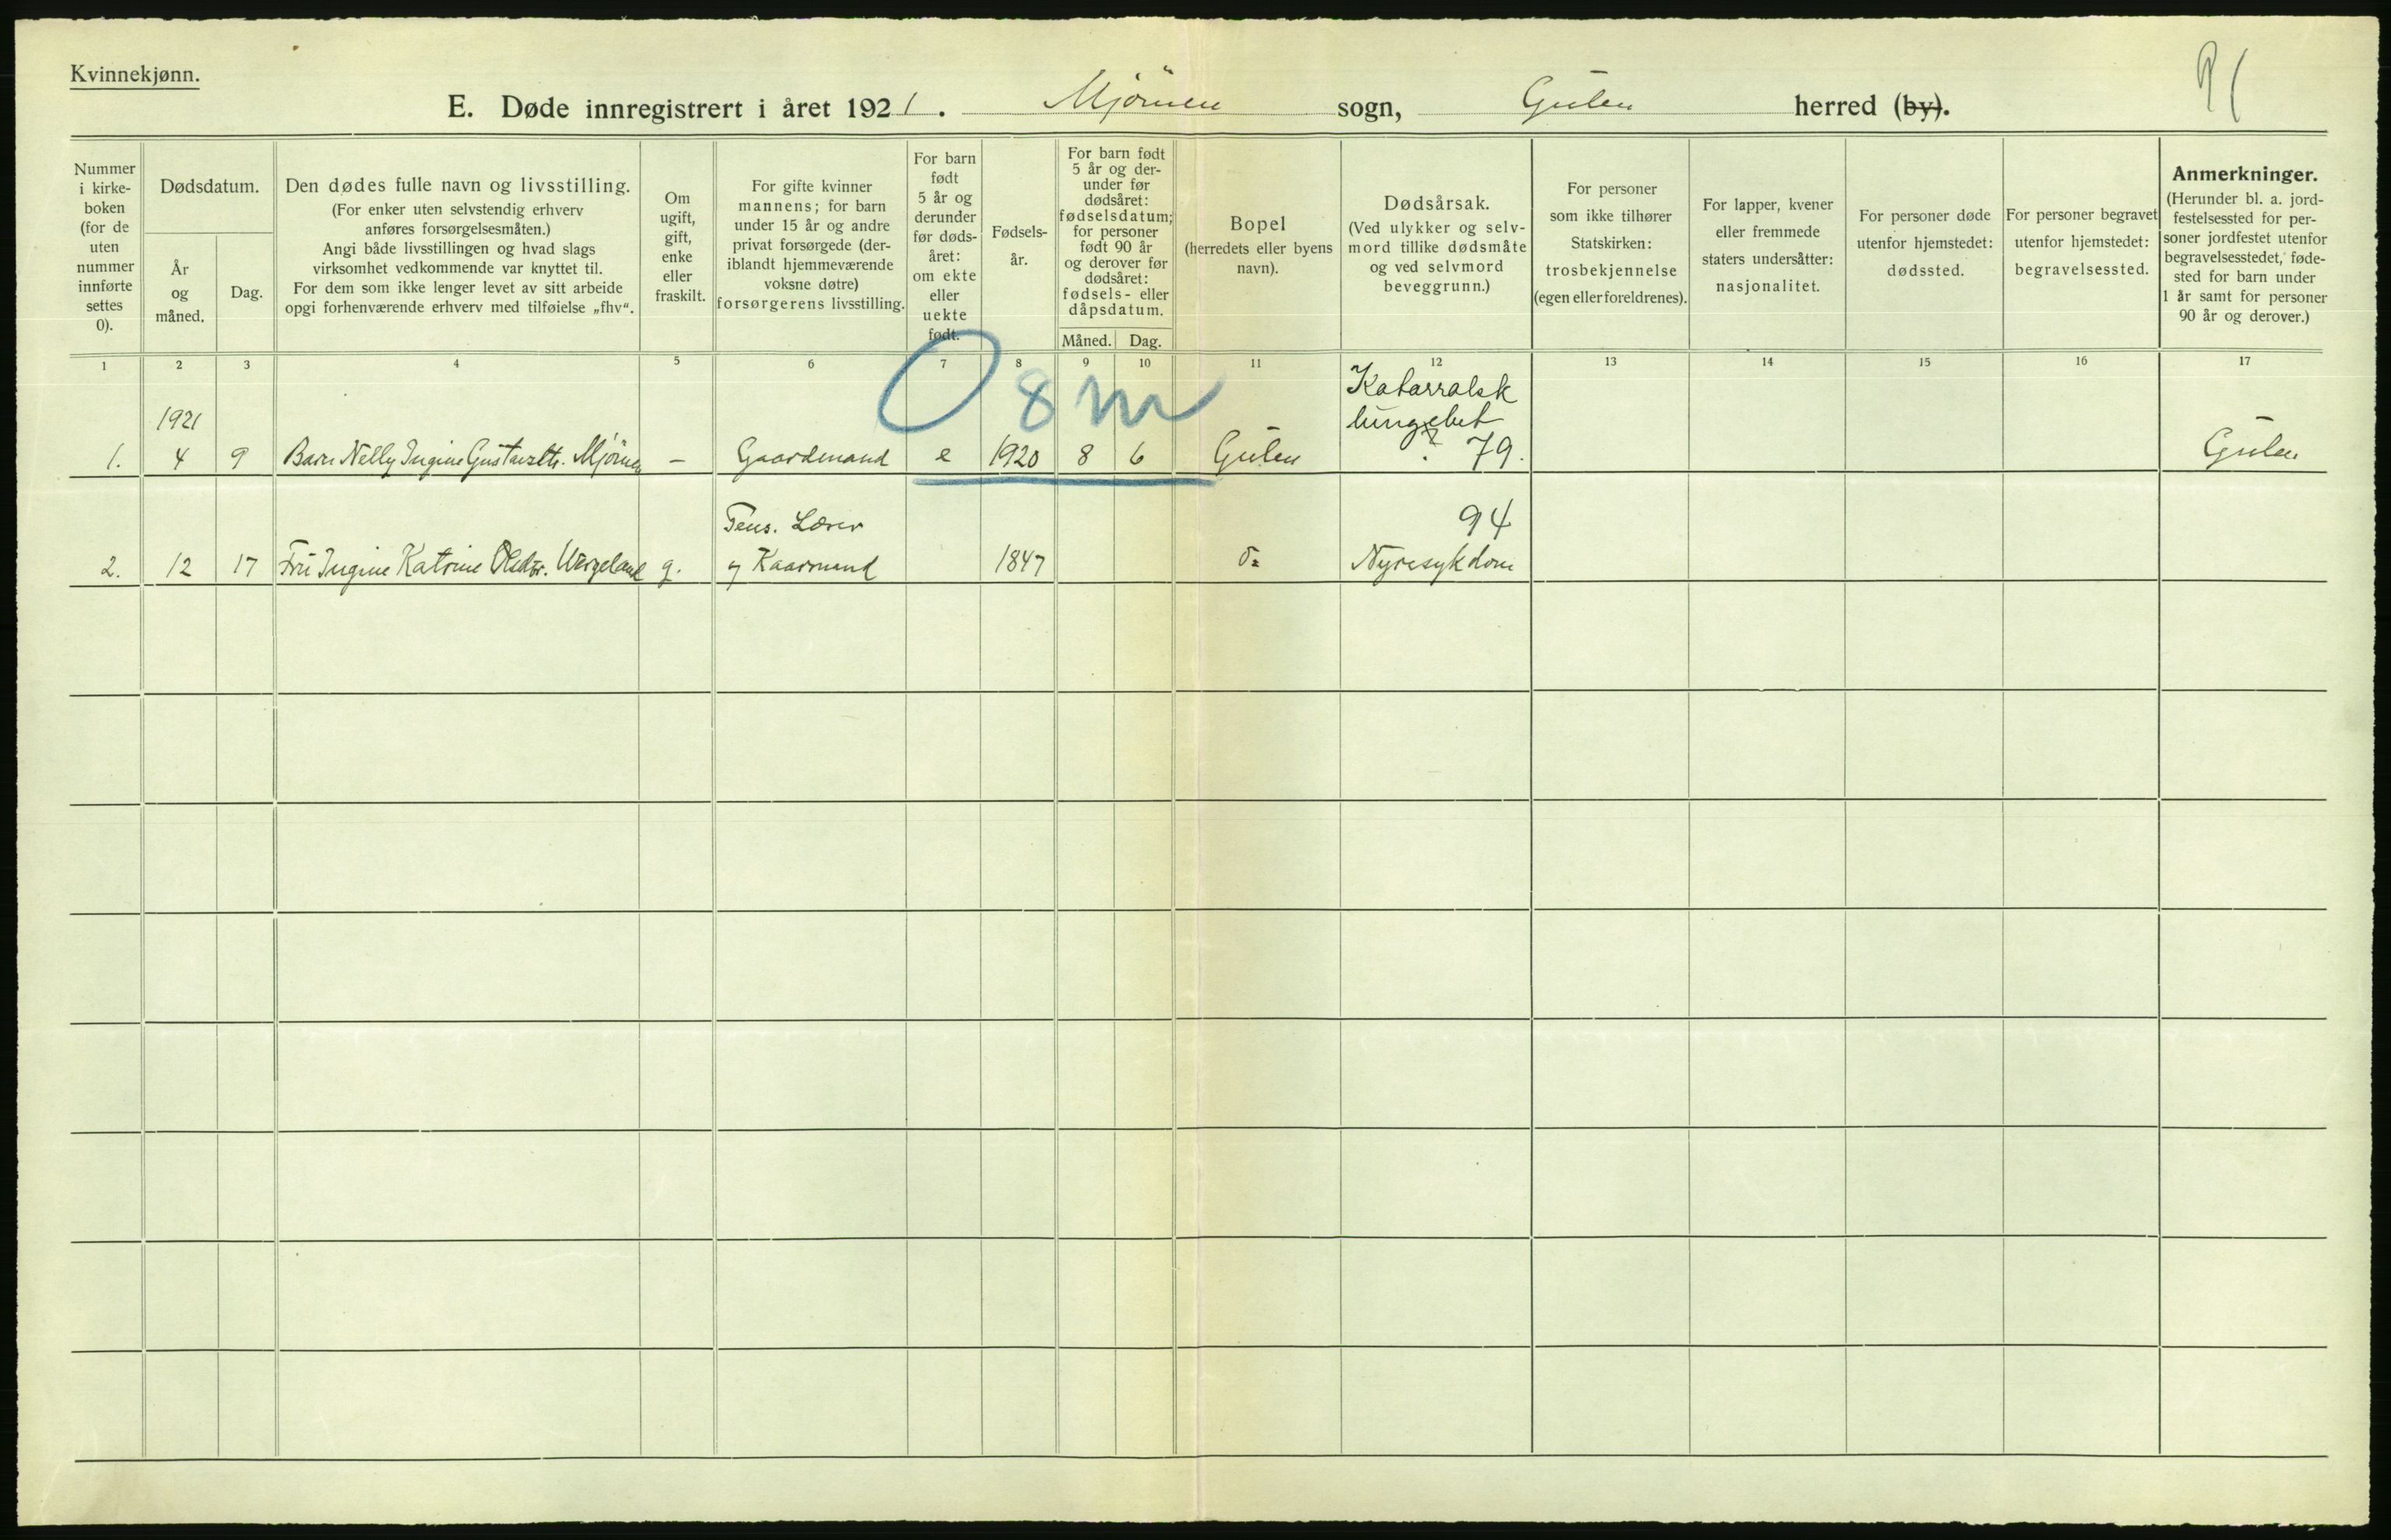 Kvinnekjønn.
E. Døde innregistrert i året 1921. Mjömen sogn, Gulen herred (by).
Nummer
i kirke-
boken
(for de
uten
nummer
innførte
settes
0).
Dødsdatum.
År
og
måned.
Dag.
Den dødes fulle navn og livsstilling.
(For enker uten selvstendig erhverv
anføres forsørgelsesmåten.)
Angi både livsstillingen og hvad slags
virksomhet vedkommende var knyttet til.
For dem som ikke lenger levet av sitt arbeide
opgi forhenværende erhverv med tilføielse „fhv“.
Om
ugift,
gift,
enke
eller
fraskilt.
For gifte kvinner
mannens; for barn
under 15 år og andre
privat forsørgede (der-
iblandt hjemmeværende
voksne døtre)
forsørgerens livsstilling.
For barn
født
5 år og
derunder
før døds-
året:
om ekte
eller
uekte
født.
Fødsels-
år.
For barn født
5 år og der-
under før
dødsåret:
fødselsdatum;
for personer
født 90 år
og derover før
dødsåret:
fødsels- eller
dåpsdatum.
Måned. Dag.
Bopel
(herredets eller byens
navn).
Dødsårsak.
(Ved ulykker og selv-
mord tillike dødsmåte
og ved selvmord
beveggrunn.)
For personer
som ikke tilhører
Statskirken:
trosbekjennelse
(egen eller foreldrenes).
For lapper, kvener
eller fremmede
staters undersåtter:
nasjonalitet.
For personer døde
utenfor hjemstedet:
dødssted.
For personer begravet
utenfor hjemstedet:
begravelsessted.
Anmerkninger.
(Herunder bl. a. jord-
festelsessted for per-
soner jordfestet utenfor
begravelsesstedet, føde-
sted for barn under
1 år samt for personer
90 år og derover.)
1 2 3 4 5 6 7 8 9 10 11 12 13 14 15 16 17
0 8 m
Katarralsk
1921
lungebet
1. 4 9 Barn Nelly Ingine Gustavsdtr. Mjömen – Gaardmand e 1920 8 6 Gulen ? 79. Gulen
Pens. Lærer 94
2. 12 17 Fru Ingine Katrine Olsdtr. Wergeland g. og Kaarmand 1847 do Nyresykdom